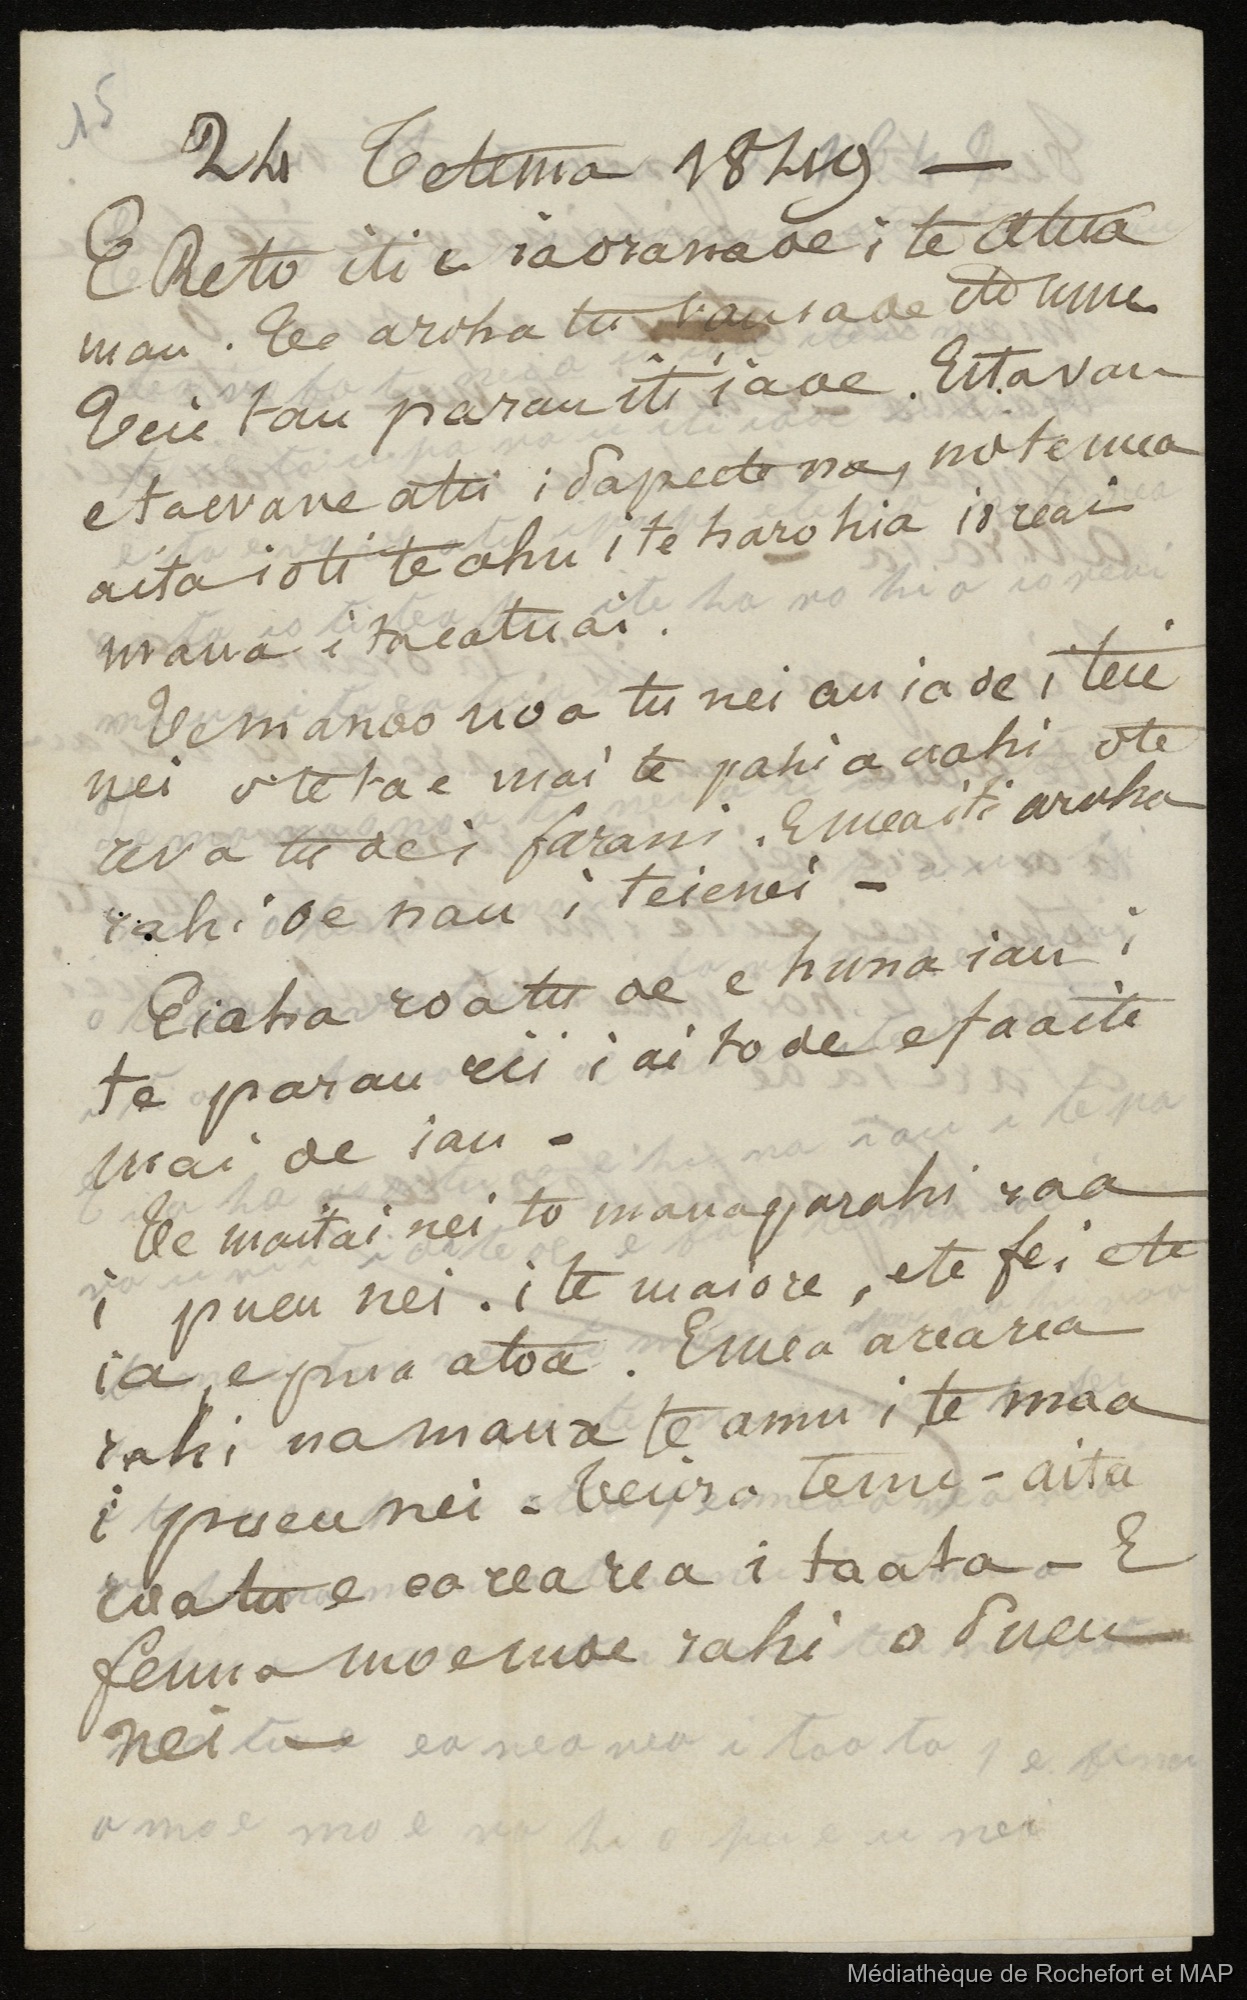 15
24 Tetema 1849 —
E Reto iti e iaoranaoe i te Atua
mau. Te aroha tu vau iaoe
Teie tau parau iti iaoe. Eita vau
e taevave atu i Papeete na, no te mea
aita i oti te ahu i te harohia ioreai
maua i taeatuai.
Te manao noa tu nei au iaoe i teie
nei o te tae mai te pahi auahi ote
reva tu oe i farani. E mea iti aroha
rahi oe nau i teienei —
Eiaha roatu oe e huna iau i
te parau rii iai to oe e faaite
mai oe iau —
Te maitai nei to maua parahi raa
i pueu nei. i te maiore, ete fei ete
ia, e pua atoa. E mea arearea
rahi na maua te amu i te maa
i pueu nei — Teiira — aita
roatu e earearea i taata — E
fenua moemoe rahi o Pueu
nei —
ea nea nea i taata
a moe moe rahi o pueu nei
Médiathèque de Rochefort et MAP